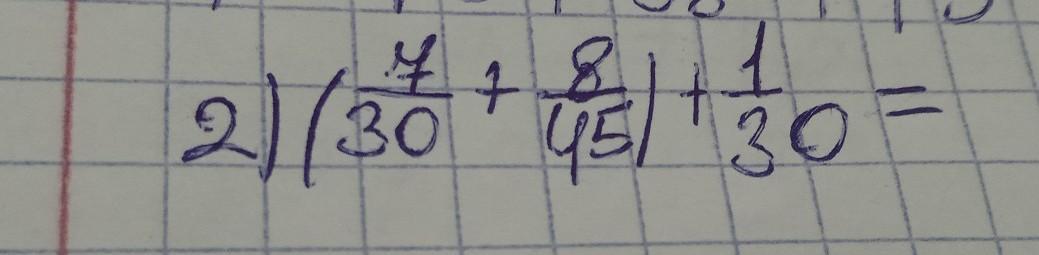 2) (7/30 + 8/45) + 1/30 =